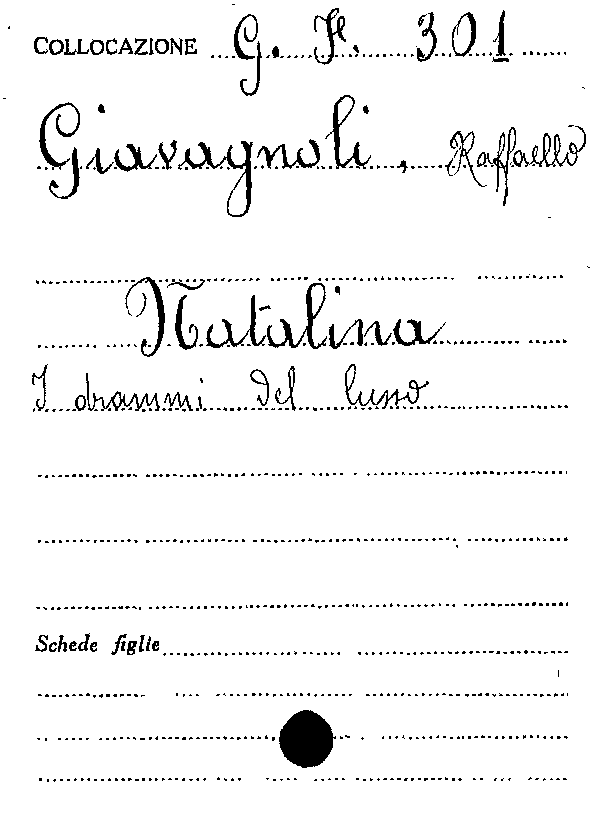 COLLOCAZIONE G. F. 301
Giavagnoli, Raffaello
Natalina
I drammi del lusso
Schede figlie